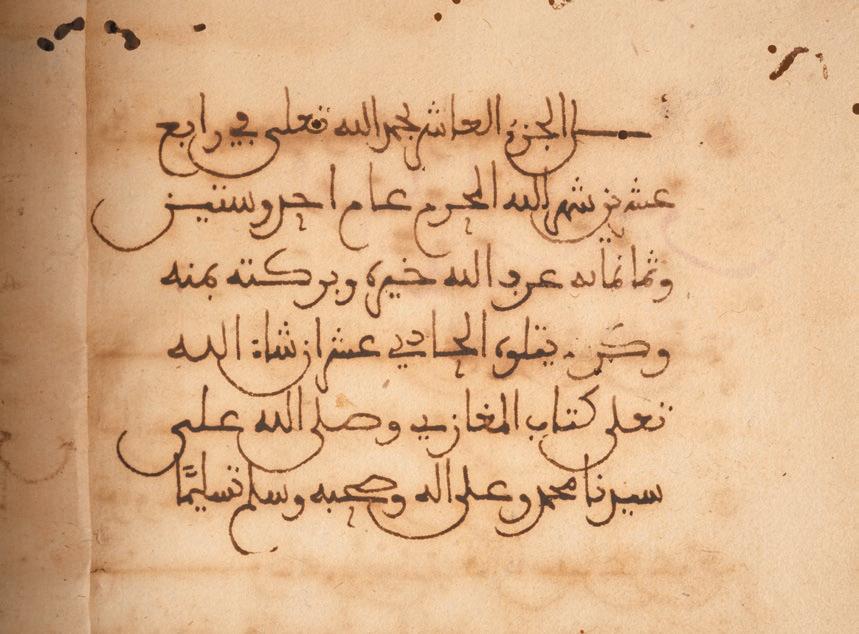 الجزء العاشر بحمد الله تعلى في رابع
عشر من شهر الله المحرم عام احد وستين
وثمانمائة عرف الله خيره وبركته بمنه
وكرمه يتلوه الحادي عشر ان شاء الله
تعلى كتاب المغازي وصلى الله على
سيدنا محمد وعلى اله وصحبه وسلم تسليمًا